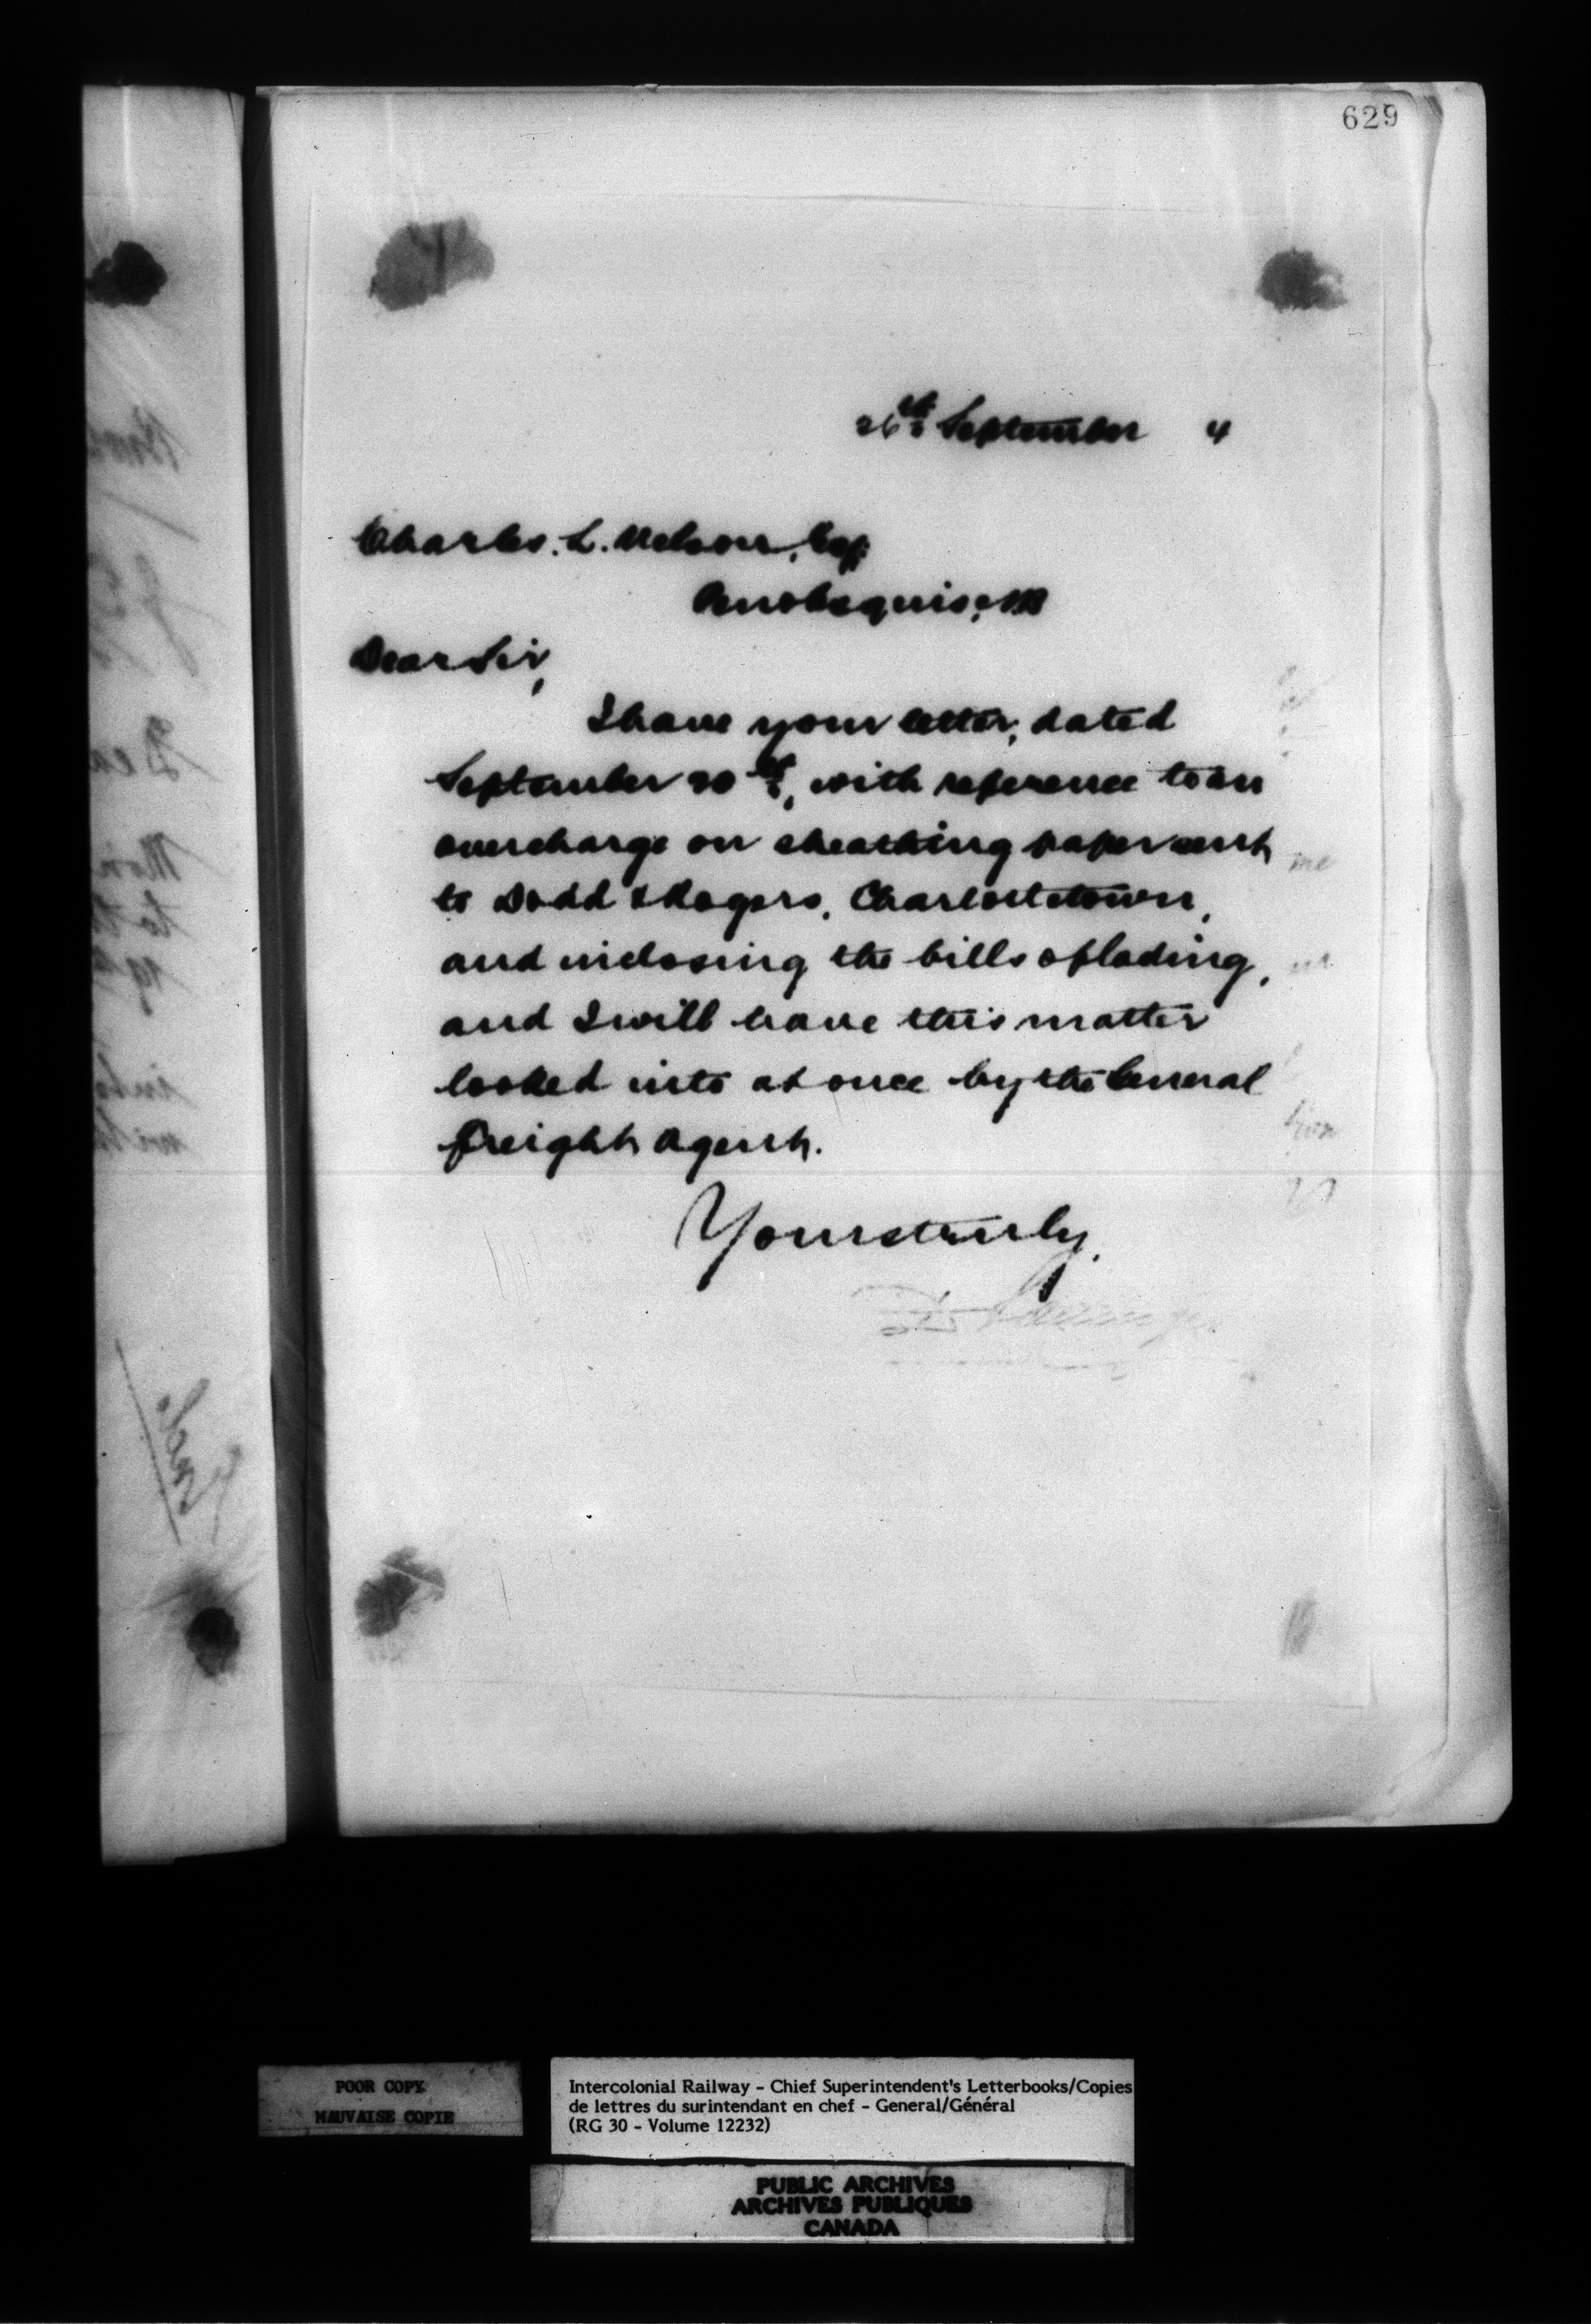 629
26th September 4
Charles. L. Nelson, Esq.
Penobsquis, NB
Dear Sir,
I have your letter, dated
September 20th, with reference to an
overcharge on sheathing paper sent
to Dodd & Rogers, Charlottetown,
and inclosing the bills of lading,
and I will have this matter
looked into at once by the General
Freight Agent.
Yours truly,
D. Pottinger
POOR COPY
MAUVAISE COPIE
Intercolonial Railway - Chief Superintendent's Letterbooks/Copies
de lettres du surintendant en chef - General/Général
(RG 30 - Volume 12232)
PUBLIC ARCHIVES
ARCHIVES PUBLIQUES
CANADA